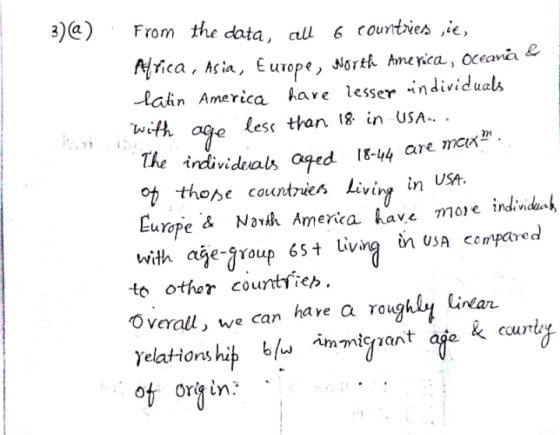 3)(a) From the data, all 6 countries, ie,
Africa, Asia, Europe, North America, Oceania &
latin America have lesser individuals
with age less than 18 in USA..
The individuals aged 18-44 are maxm.
of those countries living in USA.
Europe & North America have more individuals,
with age-group 65+ living in USA compared
to other countries.
Overall, we can have a roughly linear
relationship b/w immigrant age & country
of origin.